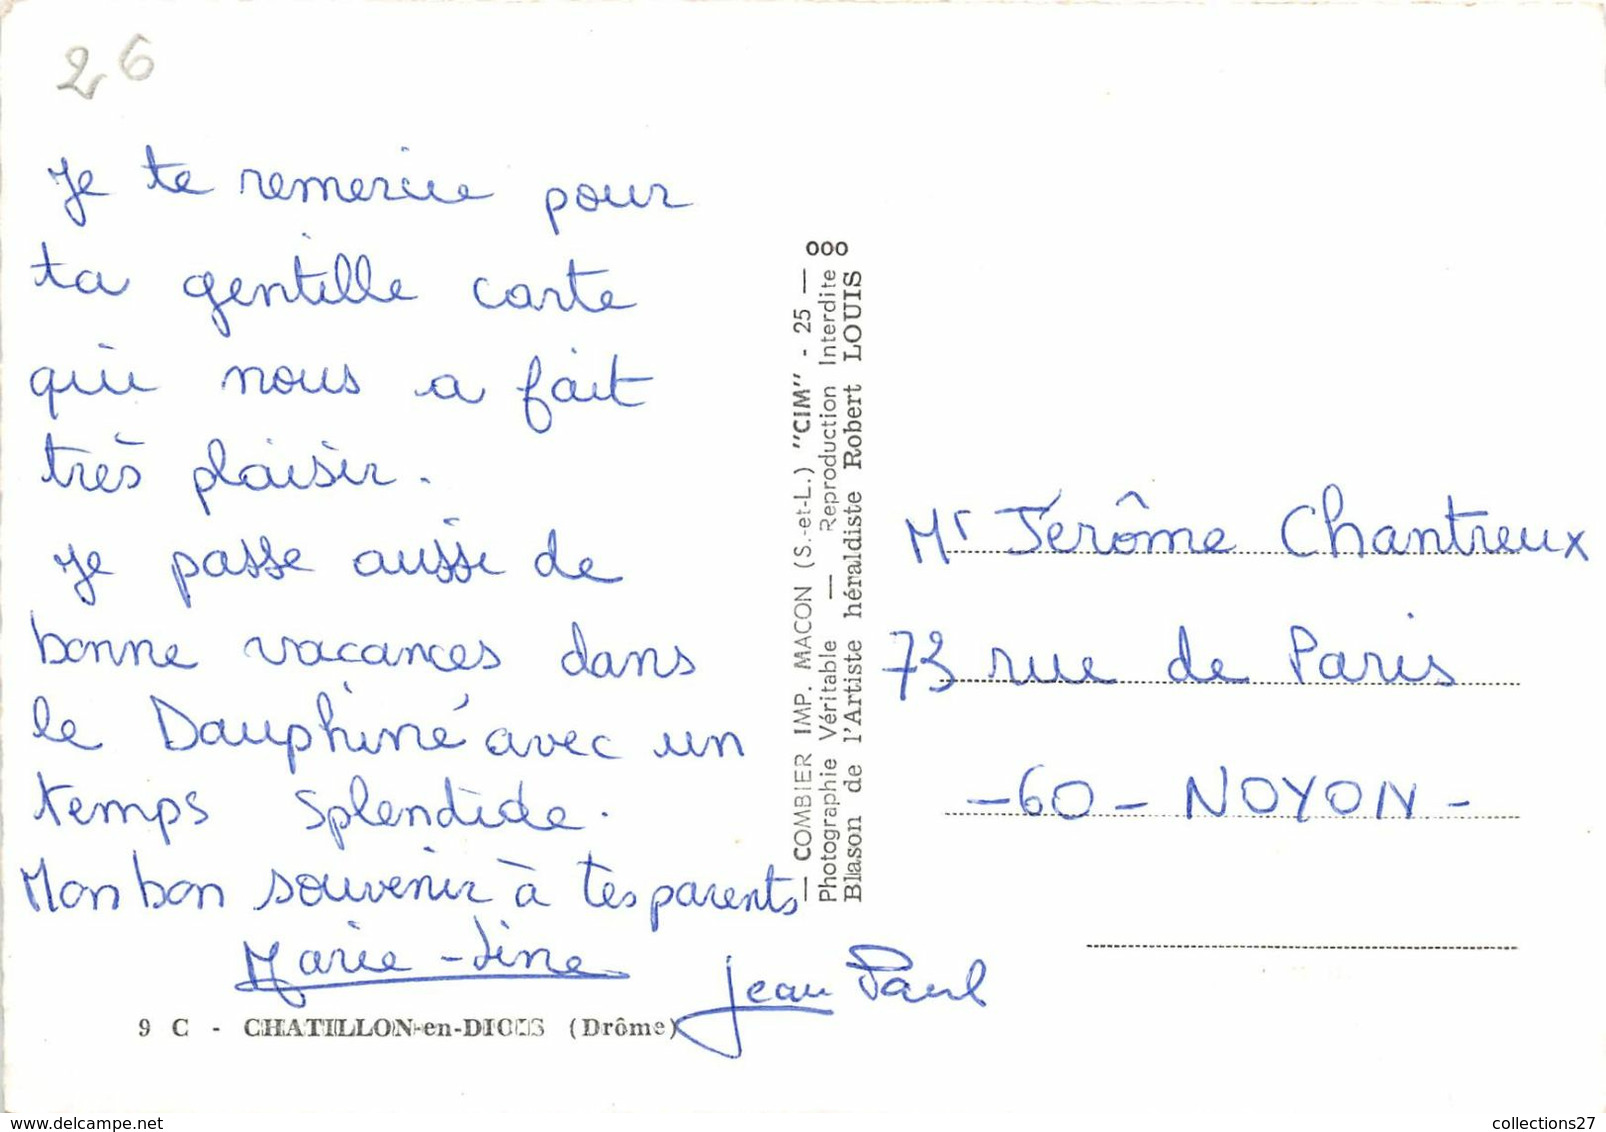 26
Je te remercie pour
ta gentille carte
qui nous a fait
très plaisir.
Je passe aussi de
bonne vacances dans
le Dauphiné avec un
temps splendide.
Mon bon souvenir à tes parents
Marie-Line
Jean Paul
9 C - CHATILLON-en-DIOIS (Drôme)
— COMBIER IMP. MACON (S.-et-L.) "CIM" - 25 — ooo
Photographie Véritable — Reproduction Interdite
Blason de l'Artiste héraldiste Robert LOUIS
Mr Jérôme Chantreux
73 rue de Paris
-60- NOYON -
www.delcampe.net
collections27